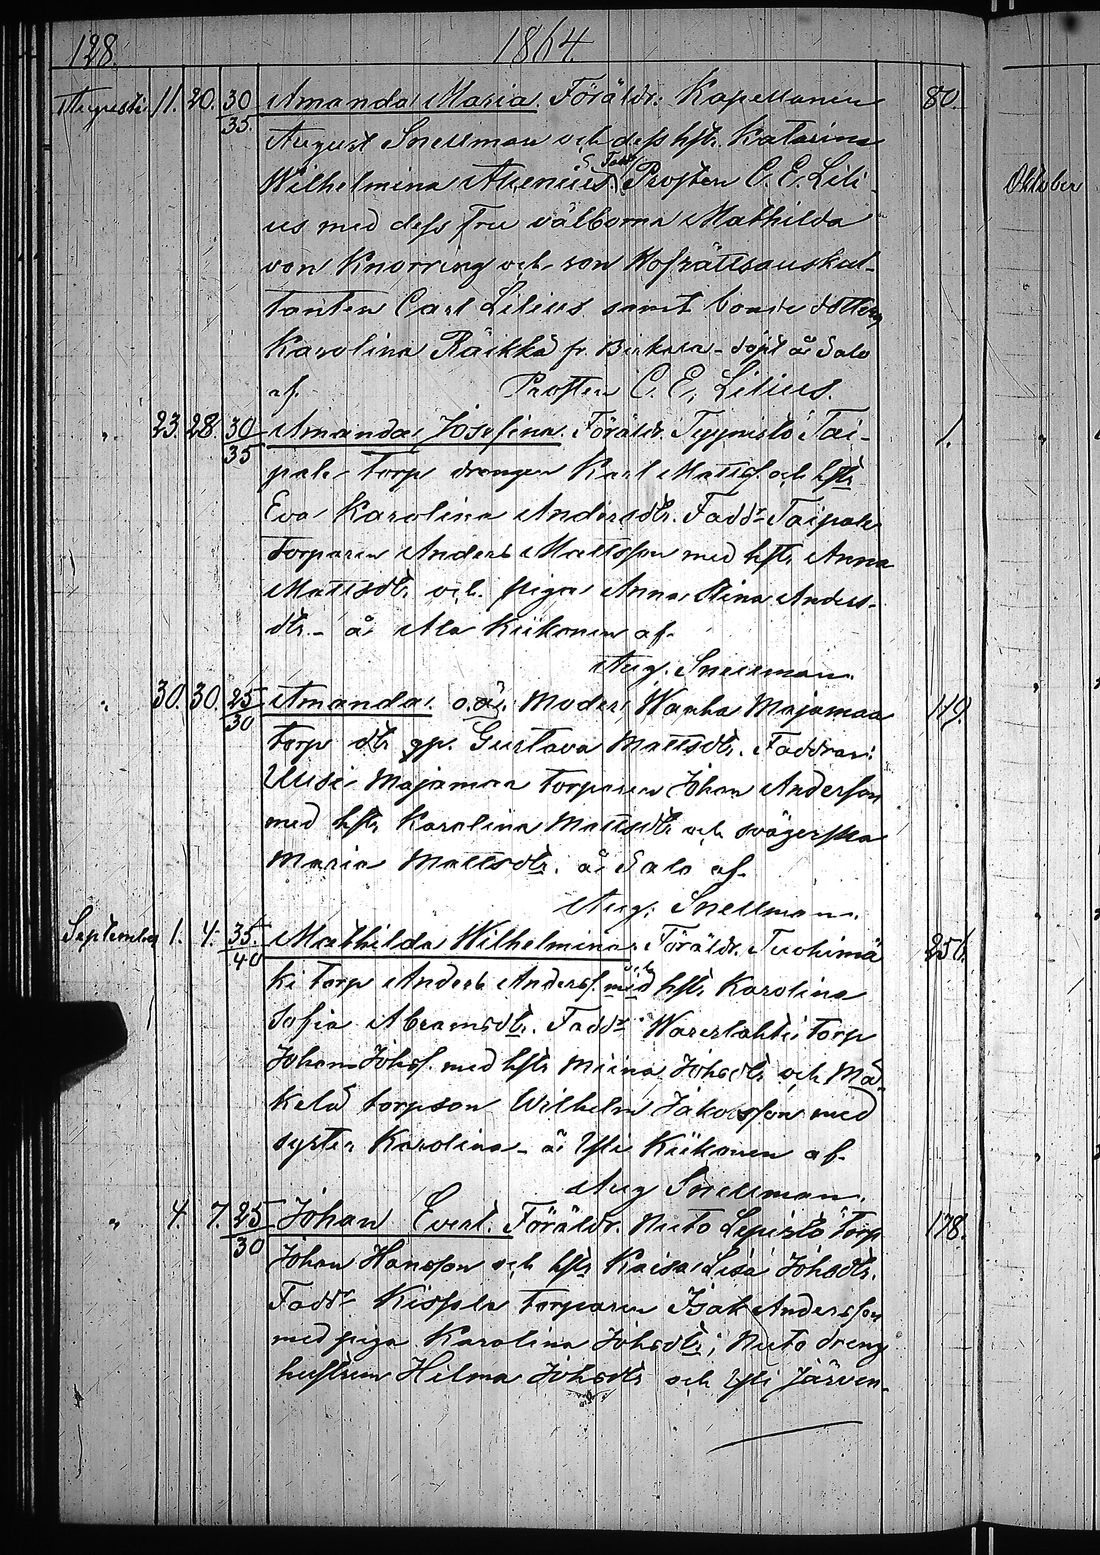 128. 1864.
Augusti 11. 20. 30/35. Amanda Maria. Föräldr: Kapellanen 80.
August Snellman och dess hstr. Katarina
Wilhelmina Alenius. Fadd. Prosten C. E. Lili-
us med dess fru välborna Mathilda
von Knorring och son Hofrättsauskul-
tanten Carl Lilius samt bonde dottern
Karolina Räikkä fr. - döpt å Salo
af Prosten C. E. Lilius.
" 23. 28. 30/35 Amanda Josefina. Föräldr. Tai- 1.
pale torp drengen Karl Mattss. och hstr
Eva Karolina Andersdtr. Faddr. Taipale
torparen Anders Mattsson med hstr Anna
Mattsdtr och pigan Anna Stina Anders-
dtr. - å Ala Kiikonen af
Aug. Snellman.
" 30. 30. 25/30 Amanda. o.ä. Moder, Wanha Majamaa 119.
torp dtr gp. Gustava Mattsdtr. Faddrar:
Uusi Majamaa torparen Johan Andersson
med hstr Karolina Mattsdtr och svägerska
Maria Mattsdtr. å Salo af
Aug. Snellman.
September 1. 4. 35/40 Mathilda Wilhelmina. Föräldr. Tuohimä 256.
ki torp Anders Anderss. och hstr Karolina
Sofia Abramsdtr. Faddr torp
Johan Johss. med hstr Miina Johsdtr och Mä-
kelä torpson Wilhelm Jakobsson med
syster Karolina - å Yli Kiikonen af
Aug Snellman.
" 4. 7. 25/30 Johan Evert. Föräldr. Nuto Lepistö torp 178.
Johan Hansson och hstr Kaisa Lisa Johsdtr.
Faddr torparen Isak Andersson
med piga Karolina Johsdtr, Nuto dreng
hustrun Hilma Johsdtr och Yli Järven-
Oktober
"
"
"
"